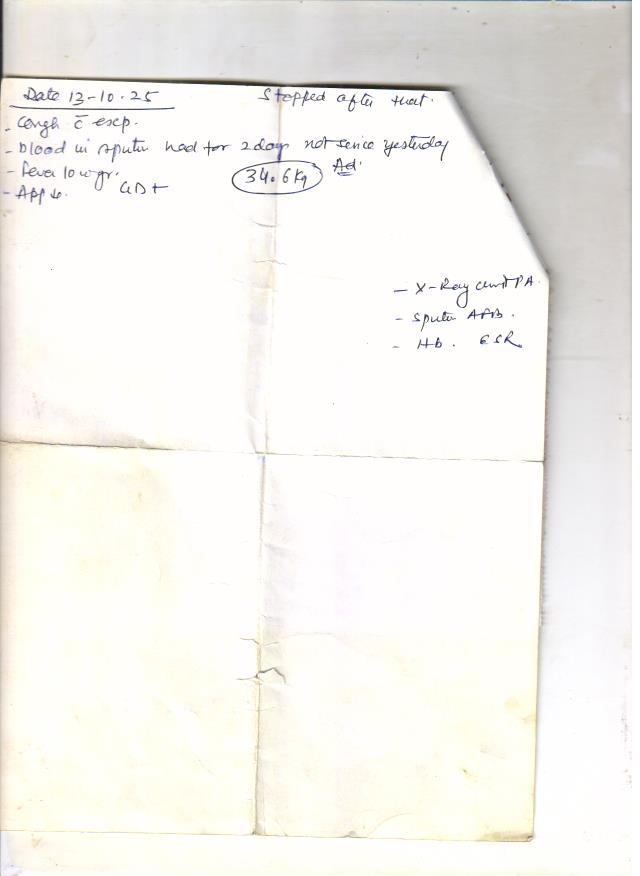 Date 13-10-25
Stopped after that.
- Cough c̄ exp.
- Blood in sputum had for 2 days not since yesterday
- Fever low gr.
34.6 Kg
Ad.
- App ↓.
GD+
- X-Ray chest PA.
- Sputum AFB.
- Hb. ESR